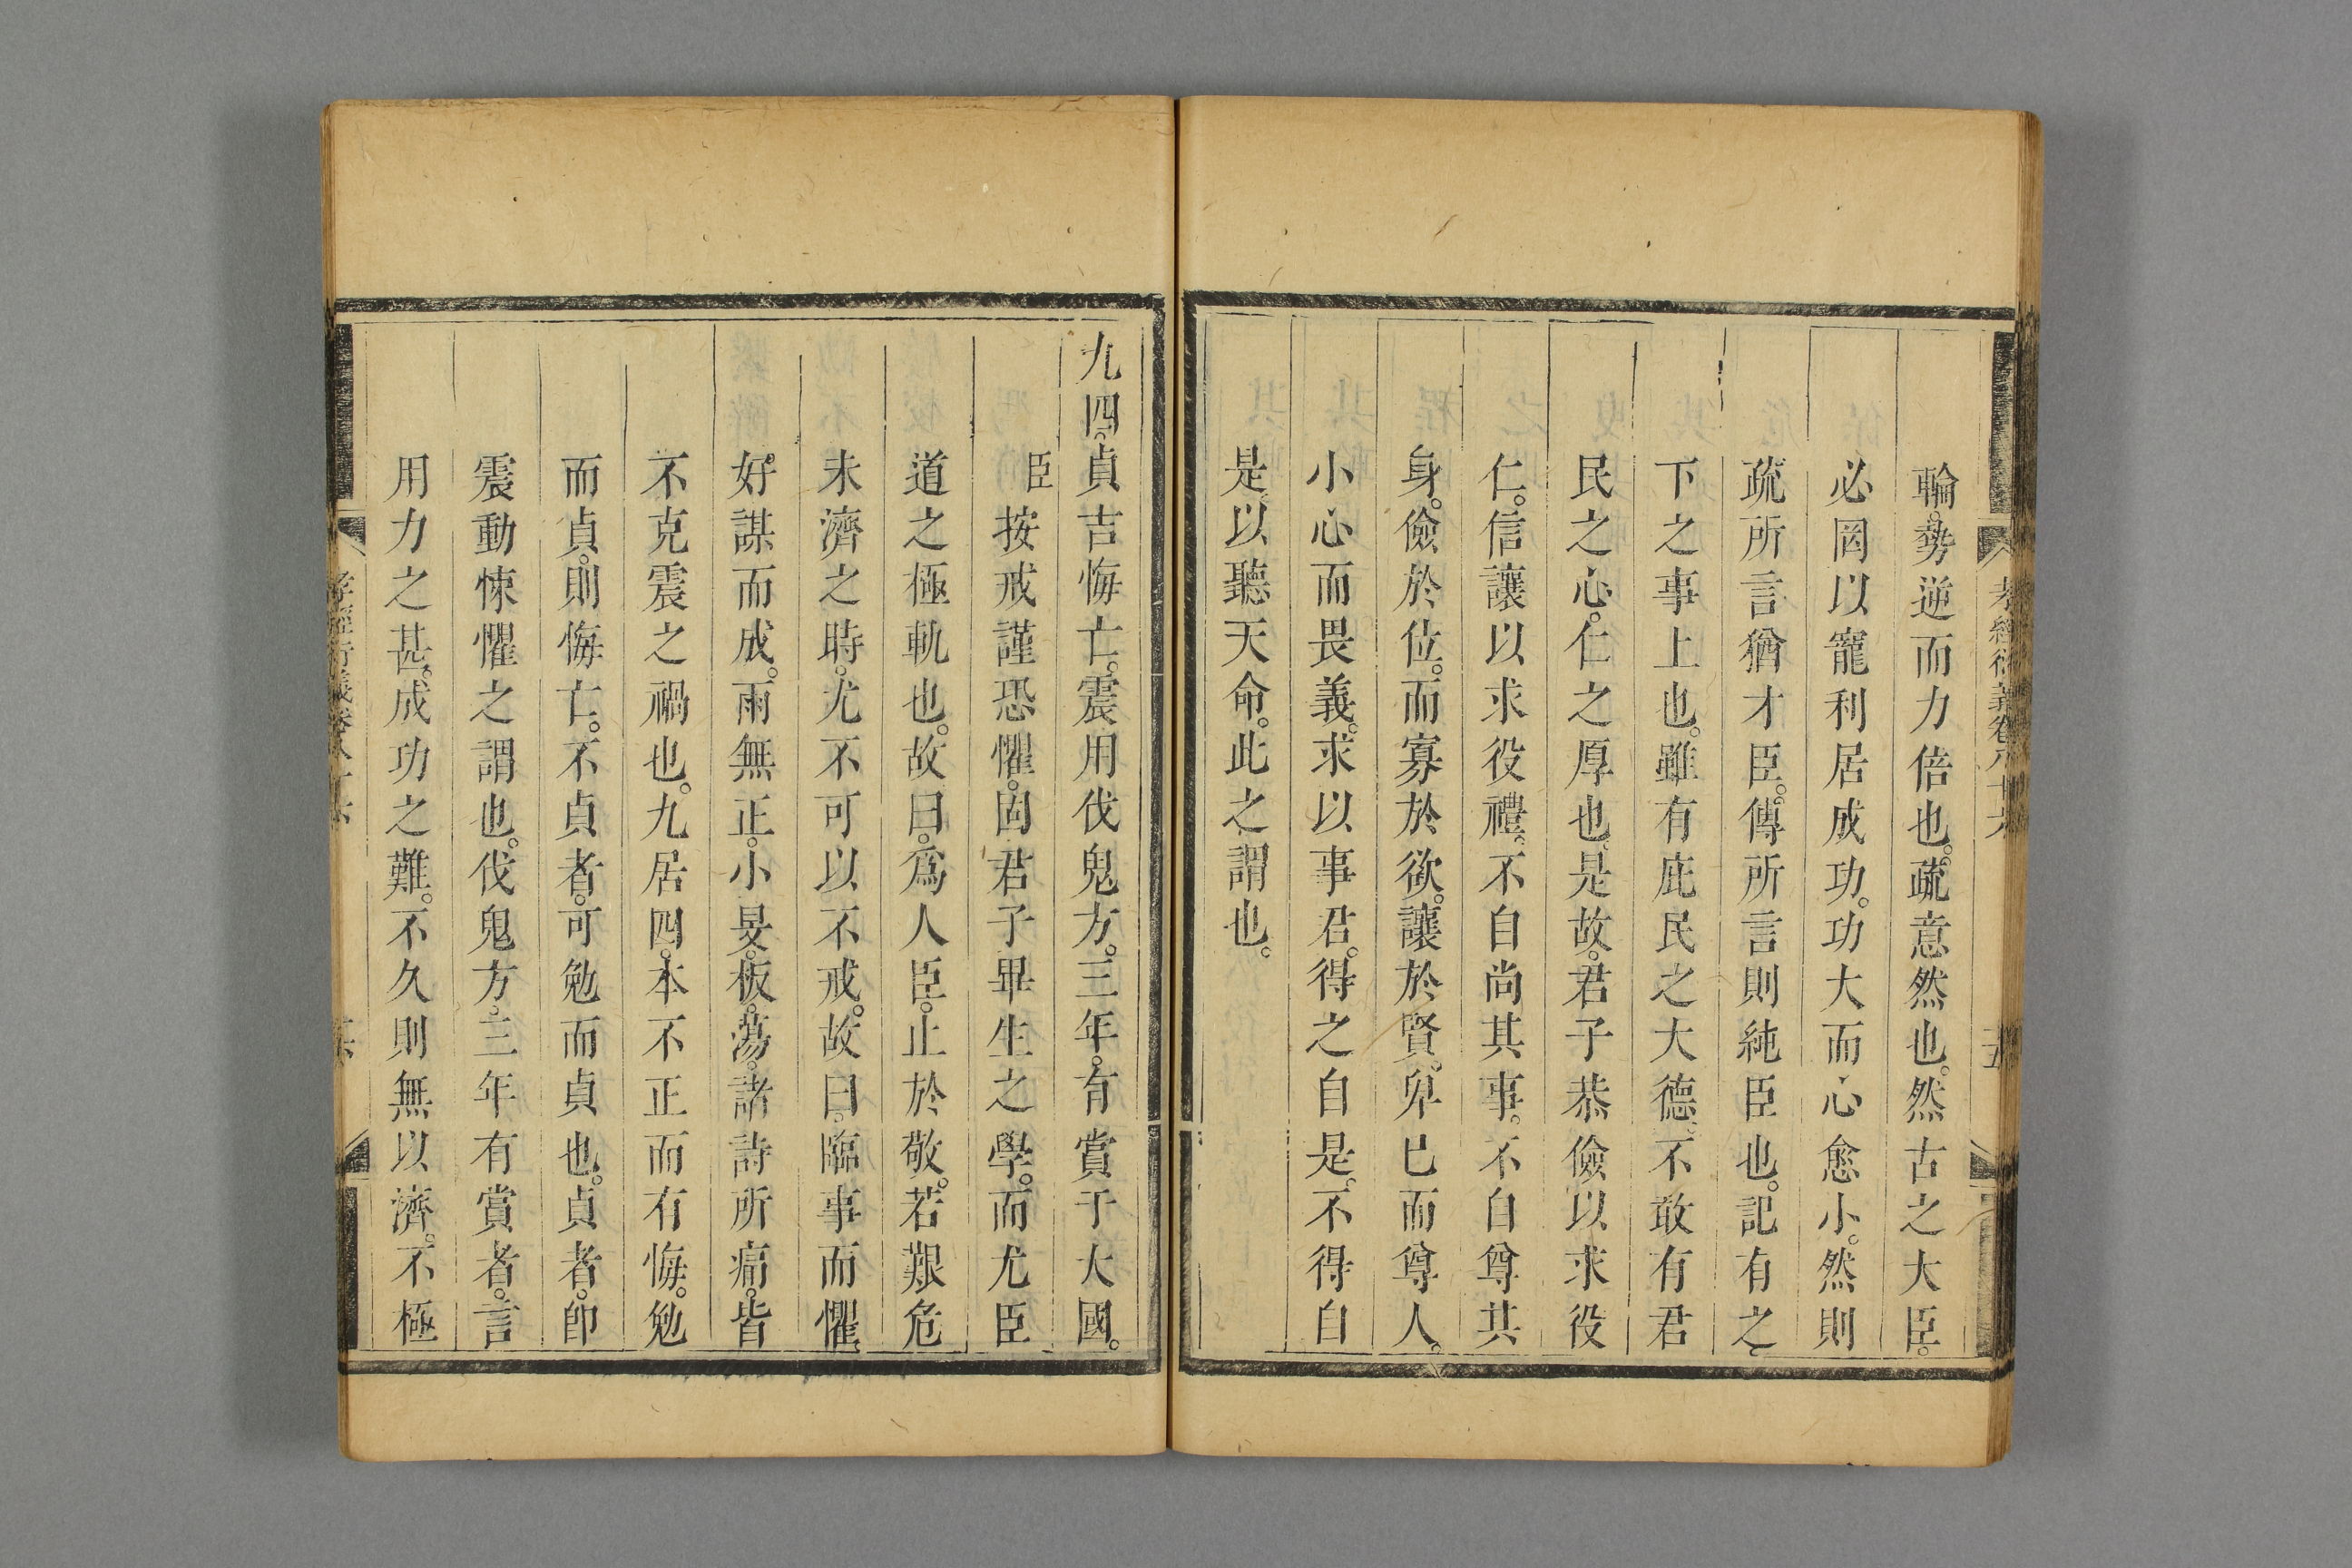 孝經衍義卷八十六
十五
輪。勢逆而力倍也。疏意然也。然古之大臣。
必罔以寵利居成功。功大而心愈小。然則
疏所言猶才臣。傳所言則純臣也。記有之。
下之事上也。雖有庇民之大德。不敢有君
民之心。仁之厚也。是故。君子恭儉以求役
仁。信讓以求役禮。不自尚其事。不自尊其
身。儉於位。而寡於欲。讓於賢。卑已而尊人。
小心而畏義。求以事君。得之自是。不得自
是。以聽天命。此之謂也。
九四。貞吉悔亡。震用伐鬼方。三年。有賞于大國。
臣按戒謹恐懼。固君子畢生之學。而尤臣
道之極軌也。故曰。爲人臣。止於敬。若艱危
未濟之時。尤不可以不戒。故曰。臨事而懼。
好謀而成。雨無正。小旻。板。蕩。諸詩所痛。皆
不克震之禍也。九居四。本不正而有悔。勉
而貞。則悔亡。不貞者。可勉而貞也。貞者。卽
震動悚懼之謂也。伐鬼方。三年有賞者。言
用力之甚。成功之難。不久則無以濟。不極
孝經衍義卷八十六